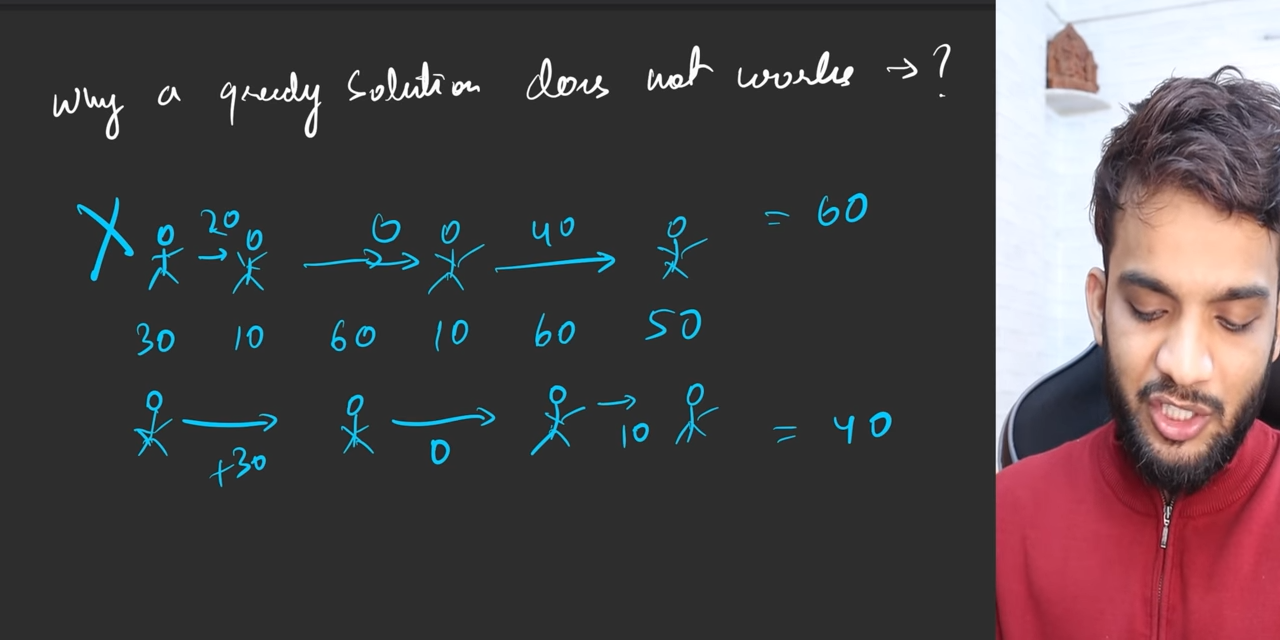 Why a greedy solution does not works → ?
X 20 → 0 →→ 40 → = 60
30 10 60 10 60 50
→ +30 → 0 → 10 = 40